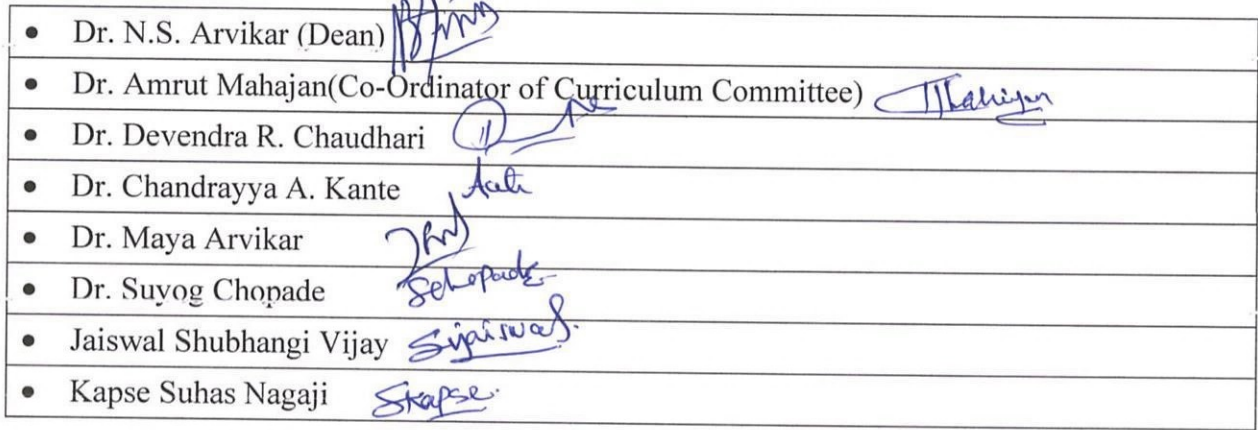 • Dr. N.S. Arvikar (Dean)
• Dr. Amrut Mahajan(Co-Ordinator of Curriculum Committee)
• Dr. Devendra R. Chaudhari
• Dr. Chandrayya A. Kante
• Dr. Maya Arvikar
• Dr. Suyog Chopade Schopade
• Jaiswal Shubhangi Vijay Sjaiswal.
• Kapse Suhas Nagaji Skapse.